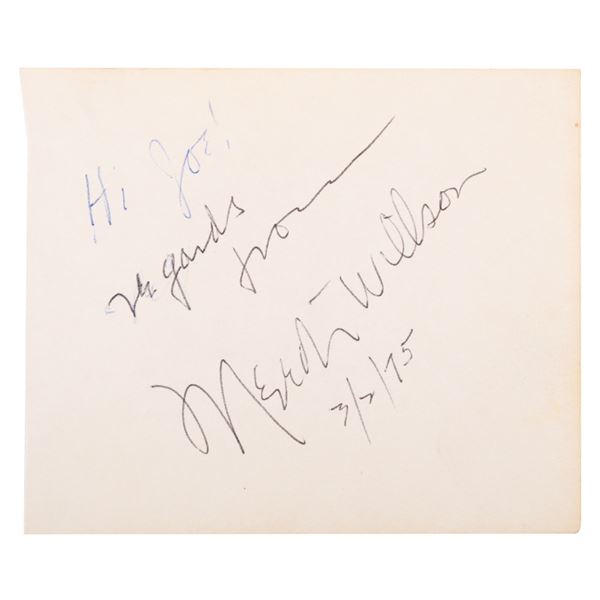 Hi Joe!
regards from
Meredith Willson
3/2/75